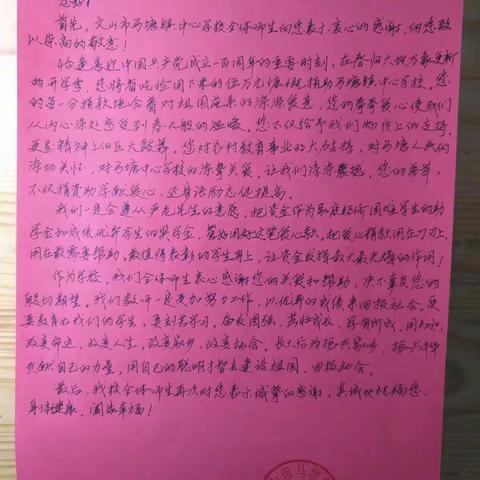 您好！
首先，文山市马塘镇中心学校全体师生向您表示衷心的感谢，向您致
以崇高的敬意！
恰逢喜迎中国共产党成立一百周年的重要时刻，在春归大地万象更新
的开学季，您将省吃俭用下来的伍万元慷慨捐助马塘镇中心学校。您
的每一分捐款饱含着对祖国花朵的深深爱意，您的拳拳爱心使我们
从内心深处感受到春天般的温暖。您不仅给予我们物质上的支持，
更是精神上的巨大鼓舞。您对乡村教育事业的大力支持，对马塘人民的
深切关怀，对马塘中心学校的深势关爱，让我们深深震撼。您的善举，
不仅捐资助学献爱心，还身语励志促提高。
我们一定会遵从尹老先生的意愿，把资金作为家庭经济困难学生的助
学金和成绩优异学生的奖学金，管好用好这笔爱心款，把爱心捐款用在刀刃上，
用在最需要帮助，最值得表彰的学生身上，让资金发挥最大最光辉的作用！
作为学校，我们全体师生衷心感谢您的关爱和帮助，决不辜负您的
殷切期望，我们教师一定更加努力工作，以优异的成绩来回报社会。更
要教育好我们的学生，要刻苦学习，奋发图强，茁壮成长，学有所成，用知识
改变命运，改变人生，改变家乡，改变社会，长大后为振兴家乡，振兴中华
贡献自己的力量，用自己的聪明才智去建设祖国，回报社会。
最后，我校全体师生再次对您表示诚挚的感谢，真诚地祝福您：
身体健康、阖家幸福！